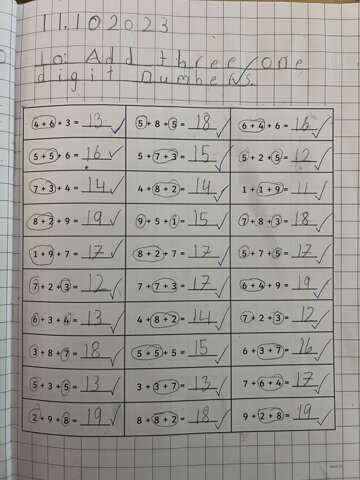 11.102023
to: Add three one
digit numbers.
4 + 6 + 3 = 13 5 + 8 + 5 = 18 6 + 4 + 6 = 16
5 + 5 + 6 = 16 5 + 7 + 3 = 15 5 + 2 + 5 = 12
7 + 3 + 4 = 14 4 + 8 + 2 = 14 1 + 1 + 9 = 11
8 + 2 + 9 = 19 9 + 5 + 1 = 15 7 + 8 + 3 = 18
1 + 9 + 7 = 17 8 + 2 + 7 = 17 5 + 7 + 5 = 17
7 + 2 + 3 = 12 7 + 7 + 3 = 17 6 + 4 + 9 = 19
6 + 3 + 4 = 13 4 + 8 + 2 = 14 7 + 2 + 3 = 12
3 + 8 + 7 = 18 5 + 5 + 5 = 15 6 + 3 + 7 = 16
5 + 3 + 5 = 13 3 + 3 + 7 = 13 7 + 6 + 4 = 17
2 + 9 + 8 = 19 8 + 8 + 2 = 18 9 + 2 + 8 = 19